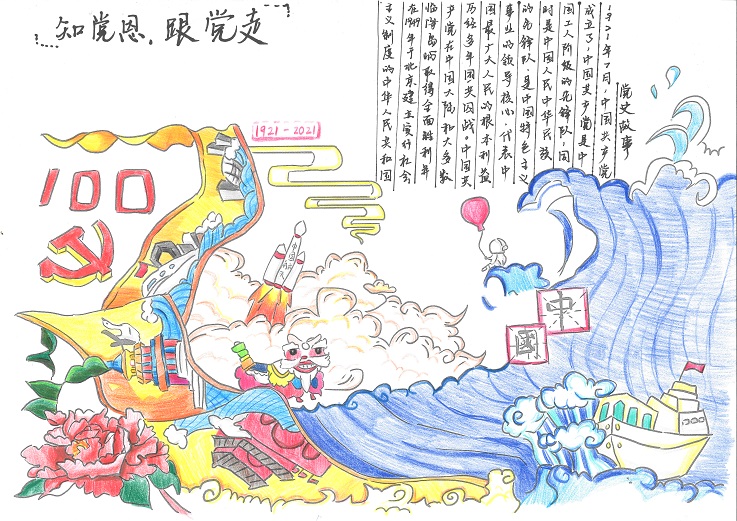 知党恩,跟党走
党史故事
1921年7月,中国共产党
成立了,中国共产党是中
国工人阶级的先锋队,同
时是中国人民中华民族
的先锋队,是中国特色主义
事业的领导核心,代表中
国最广大人民的根本利益
历经多年国共内战,中国共
产党在中国大陆和大多数
临海岛屿取得全面胜利并
在1949年于北京建立实行社会
主义制度的中华人民共和国
1921-2021
100
中国航天
中
國